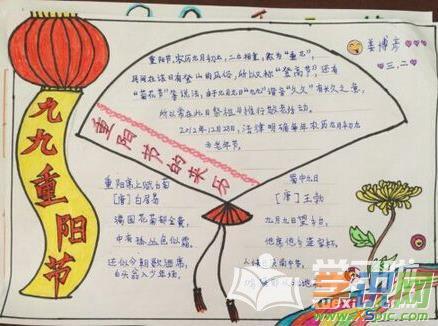 姜博彦
三、二
九九重阳节
重阳节的来历
重阳节,农历九月初九,二九相重,称为"重九",
民间在该日有登山的风俗,所以又称"登高节"。还有
"菊花节"等说法。由于九月九日"九九"谐音"久久"有长久之意,
所以常在此日祭祖与推行敬老活动。
2012年12月28日,法律明确每年农历九月初九
为老年节。
重阳席上赋白菊
[唐]白居易
满园花菊郁金黄,
中有孤丛色似霜。
还似今朝歌酒席,
白头翁入少年场。
蜀中九日
[唐]王勃
九月九日望乡台,
他席他乡送客杯。